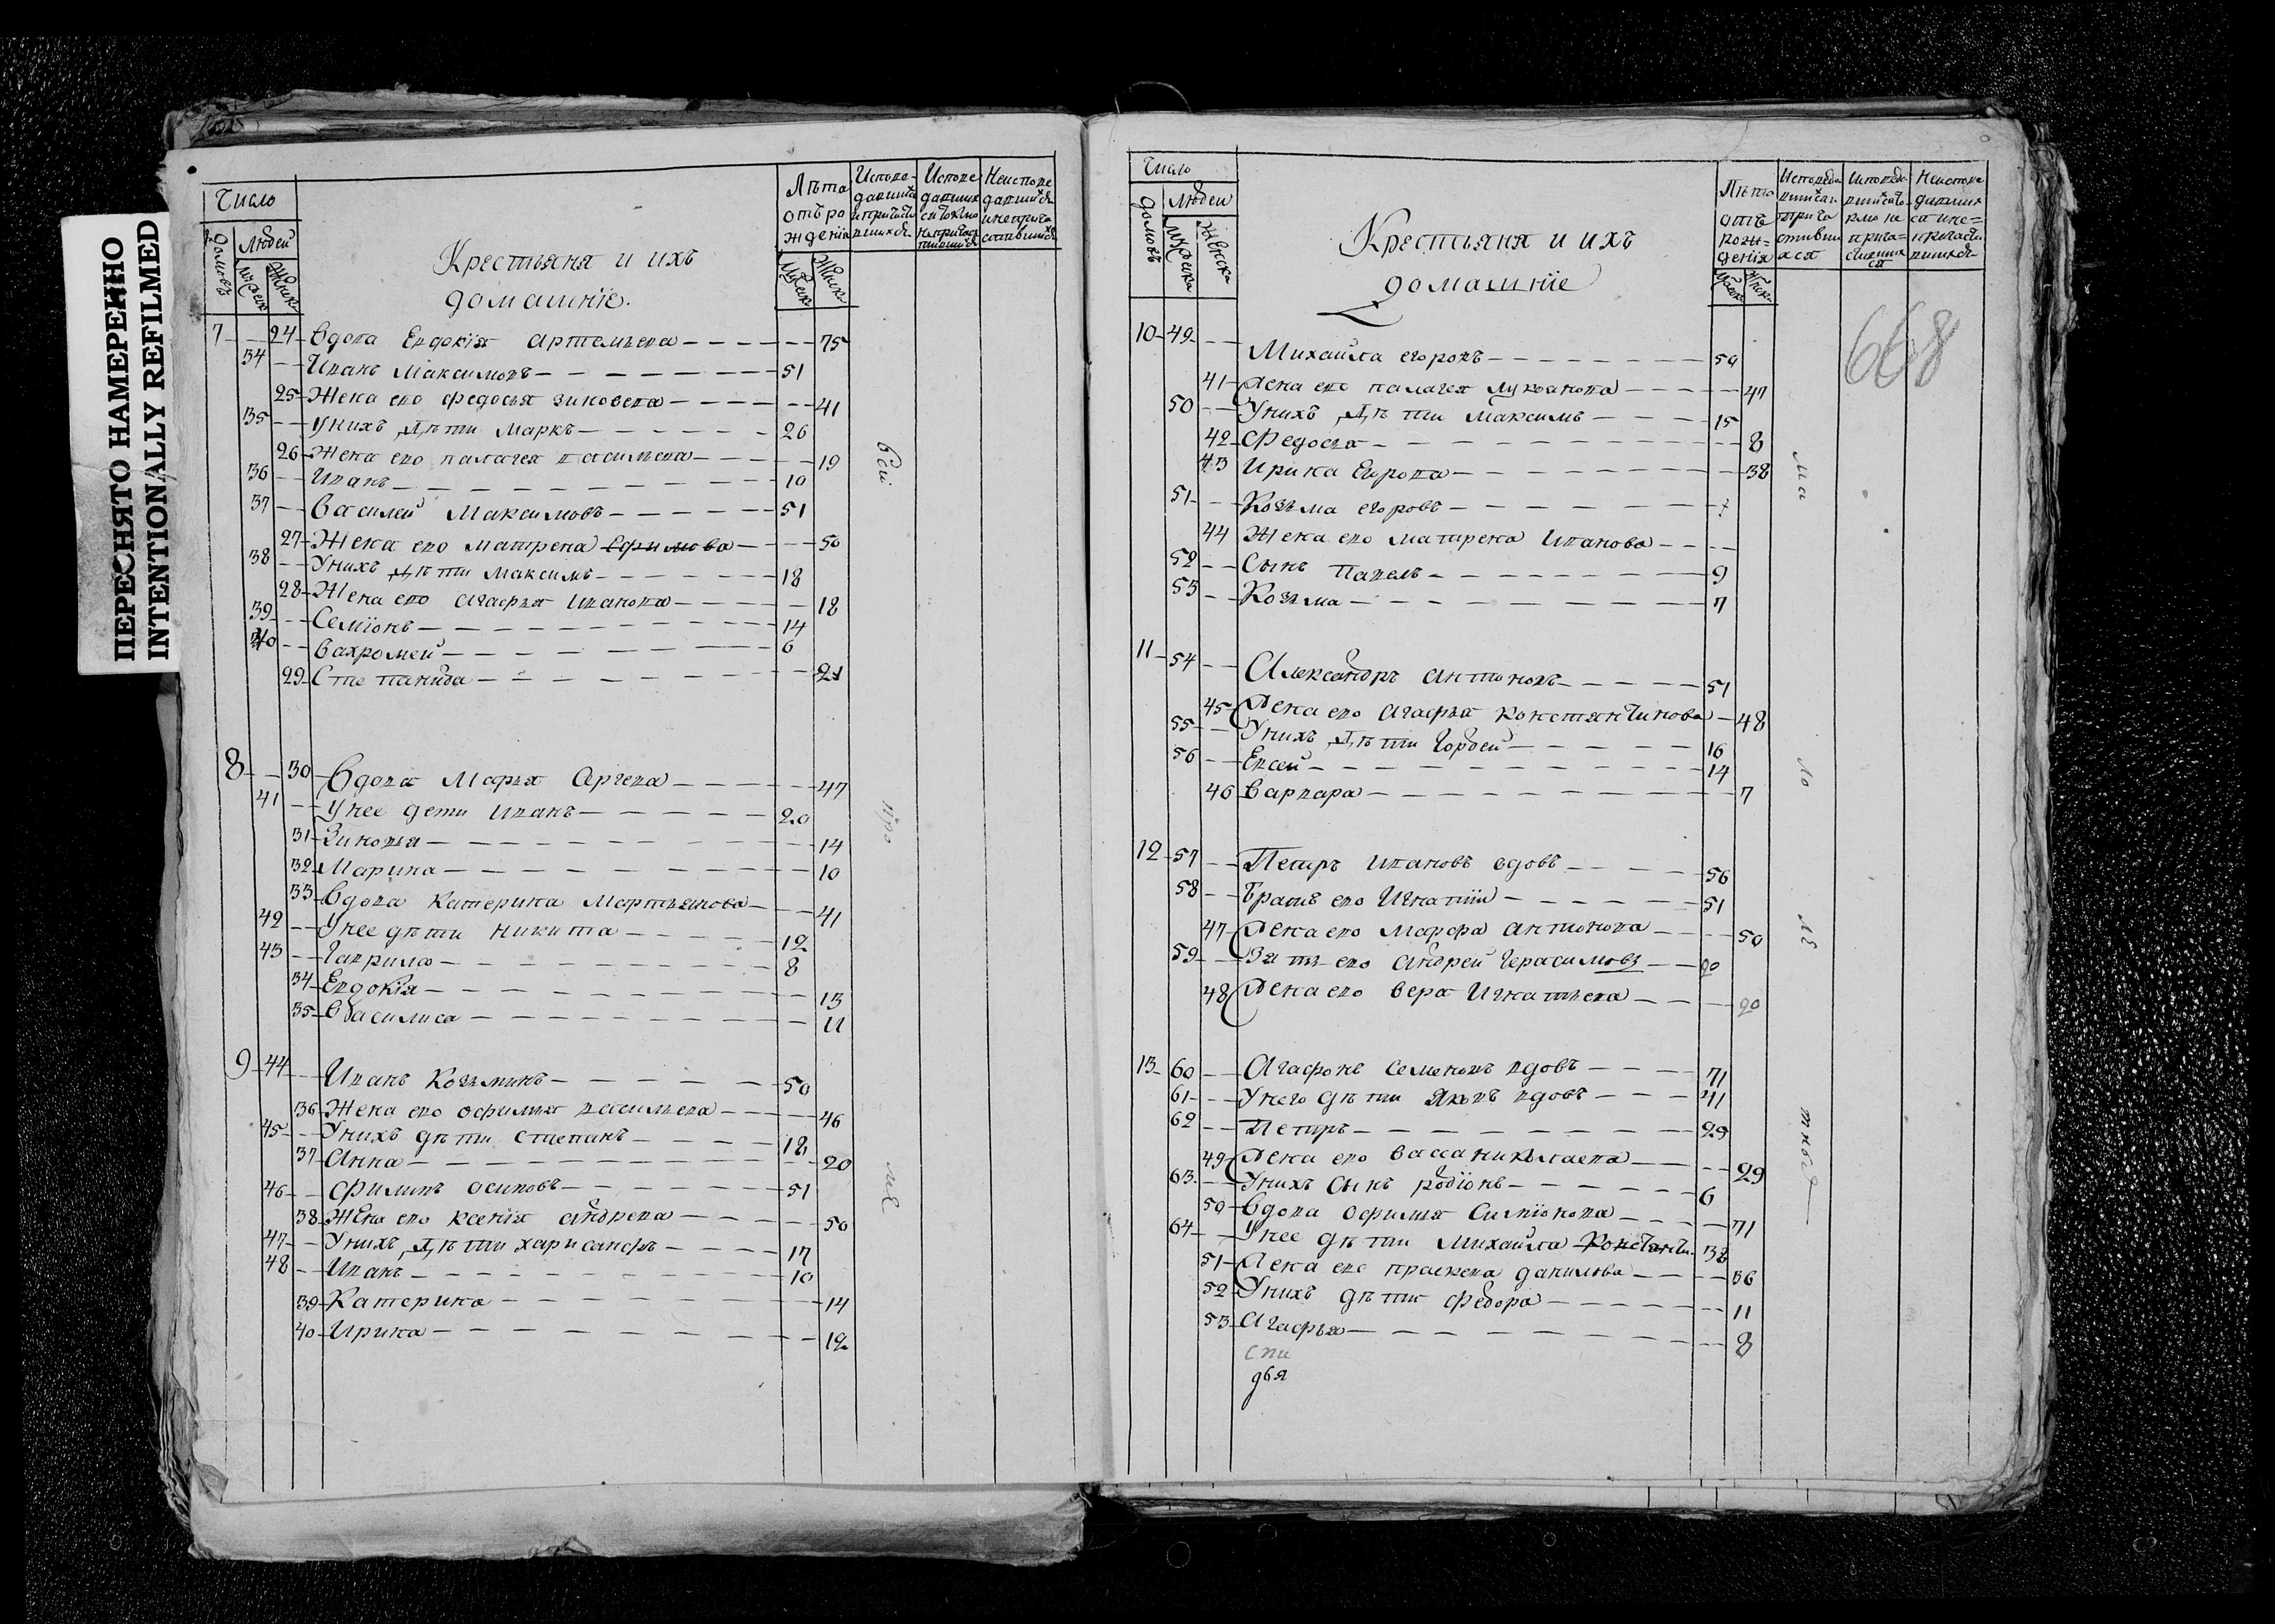 ПЕРЕСНЯТО НАМЕРЕННО
INTENTIONALLY REFILMED
Число
домовъ
Людей
мужеск
женск
Крестьяня и ихъ
домашнїе.
Лѣта
отъ ро
жденїя
мужеск
женск
7 24 вдова Евдокїя Артемьева 75
34 Иванъ Максимовъ 51
25 Жена ево федосья зиновева 41
35 У нихъ дѣти Маркъ 26
26 Жена ево палагея василева 19
36 Иванъ 10
37 Василей Максимовъ 51
27 Жена ево Матрена Ефимова 50
38 У нихъ дѣти Максимъ 18
28 Жена ево Агафья Иванова 18
39 Семїонъ 14
40 вахромей 6
29 Степанида 21
8 30 вдова Марья Сргева 47
41 У нее дети Иванъ 20
31 Зиновья 14
32 Марина 10
33 вдова Катерина Мартьянова 41
42 У нее дѣти Никита 12
43 Гаврило 8
34 Евдокїя 13
35 Василиса 11
9 44 Иванъ Козьминъ 50
36 Жена ево офимья василева 46
45 У нихъ дѣти степанъ 18
37 Анна 20
46 филипъ осиповъ 51
38 Жена ево ксенїя андрева 50
47 У нихъ дѣти харисанфъ 17
48 Иванъ 10
39 Катерина 14
40 Ирина 12
Число
домовъ
Людей
мужеска
женска
Крестьяня и ихъ
домашнїе
Лѣта
отъ
рож=
денїя
668
10 49 Михайла егоровъ 50
41 Жена ево палагея Лукьянова 47
50 У нихъ дѣти Максимъ 15
42 федосья 8
43 Ирина Егорова 38
51 Козьма егоровъ
44 Жена ево матрена Иванова
52 Сынъ Павелъ 9
53 Козьма 7
11 54 Александръ Антоновъ 51
45 Жена ево Агафья констянтинова 48
55 У нихъ дѣти Гордей 16
56 Евсей 14
46 варвара 7
12 57 Петръ Ивановъ вдовъ 56
58 Братъ ево Игнатїи 51
47 Жена ево Марфа Антонова 50
59 Зять ево Андрей Герасимовъ 20
48 Жена ево вера Игнатьева 20
13 60 Агафонъ Семеновъ вдовъ 71
61 У него дѣти Яковъ вдовъ 41
62 Петръ 29
49 Жена ево васса николаева 29
63 У нихъ сынъ родїонъ 6
50 вдова офимья Симїонова 71
64 У нее дѣти Михайла Констянти 38
51 Жена ево праскева данилова 36
52 У нихъ дѣти федора 11
53 Агафья 8